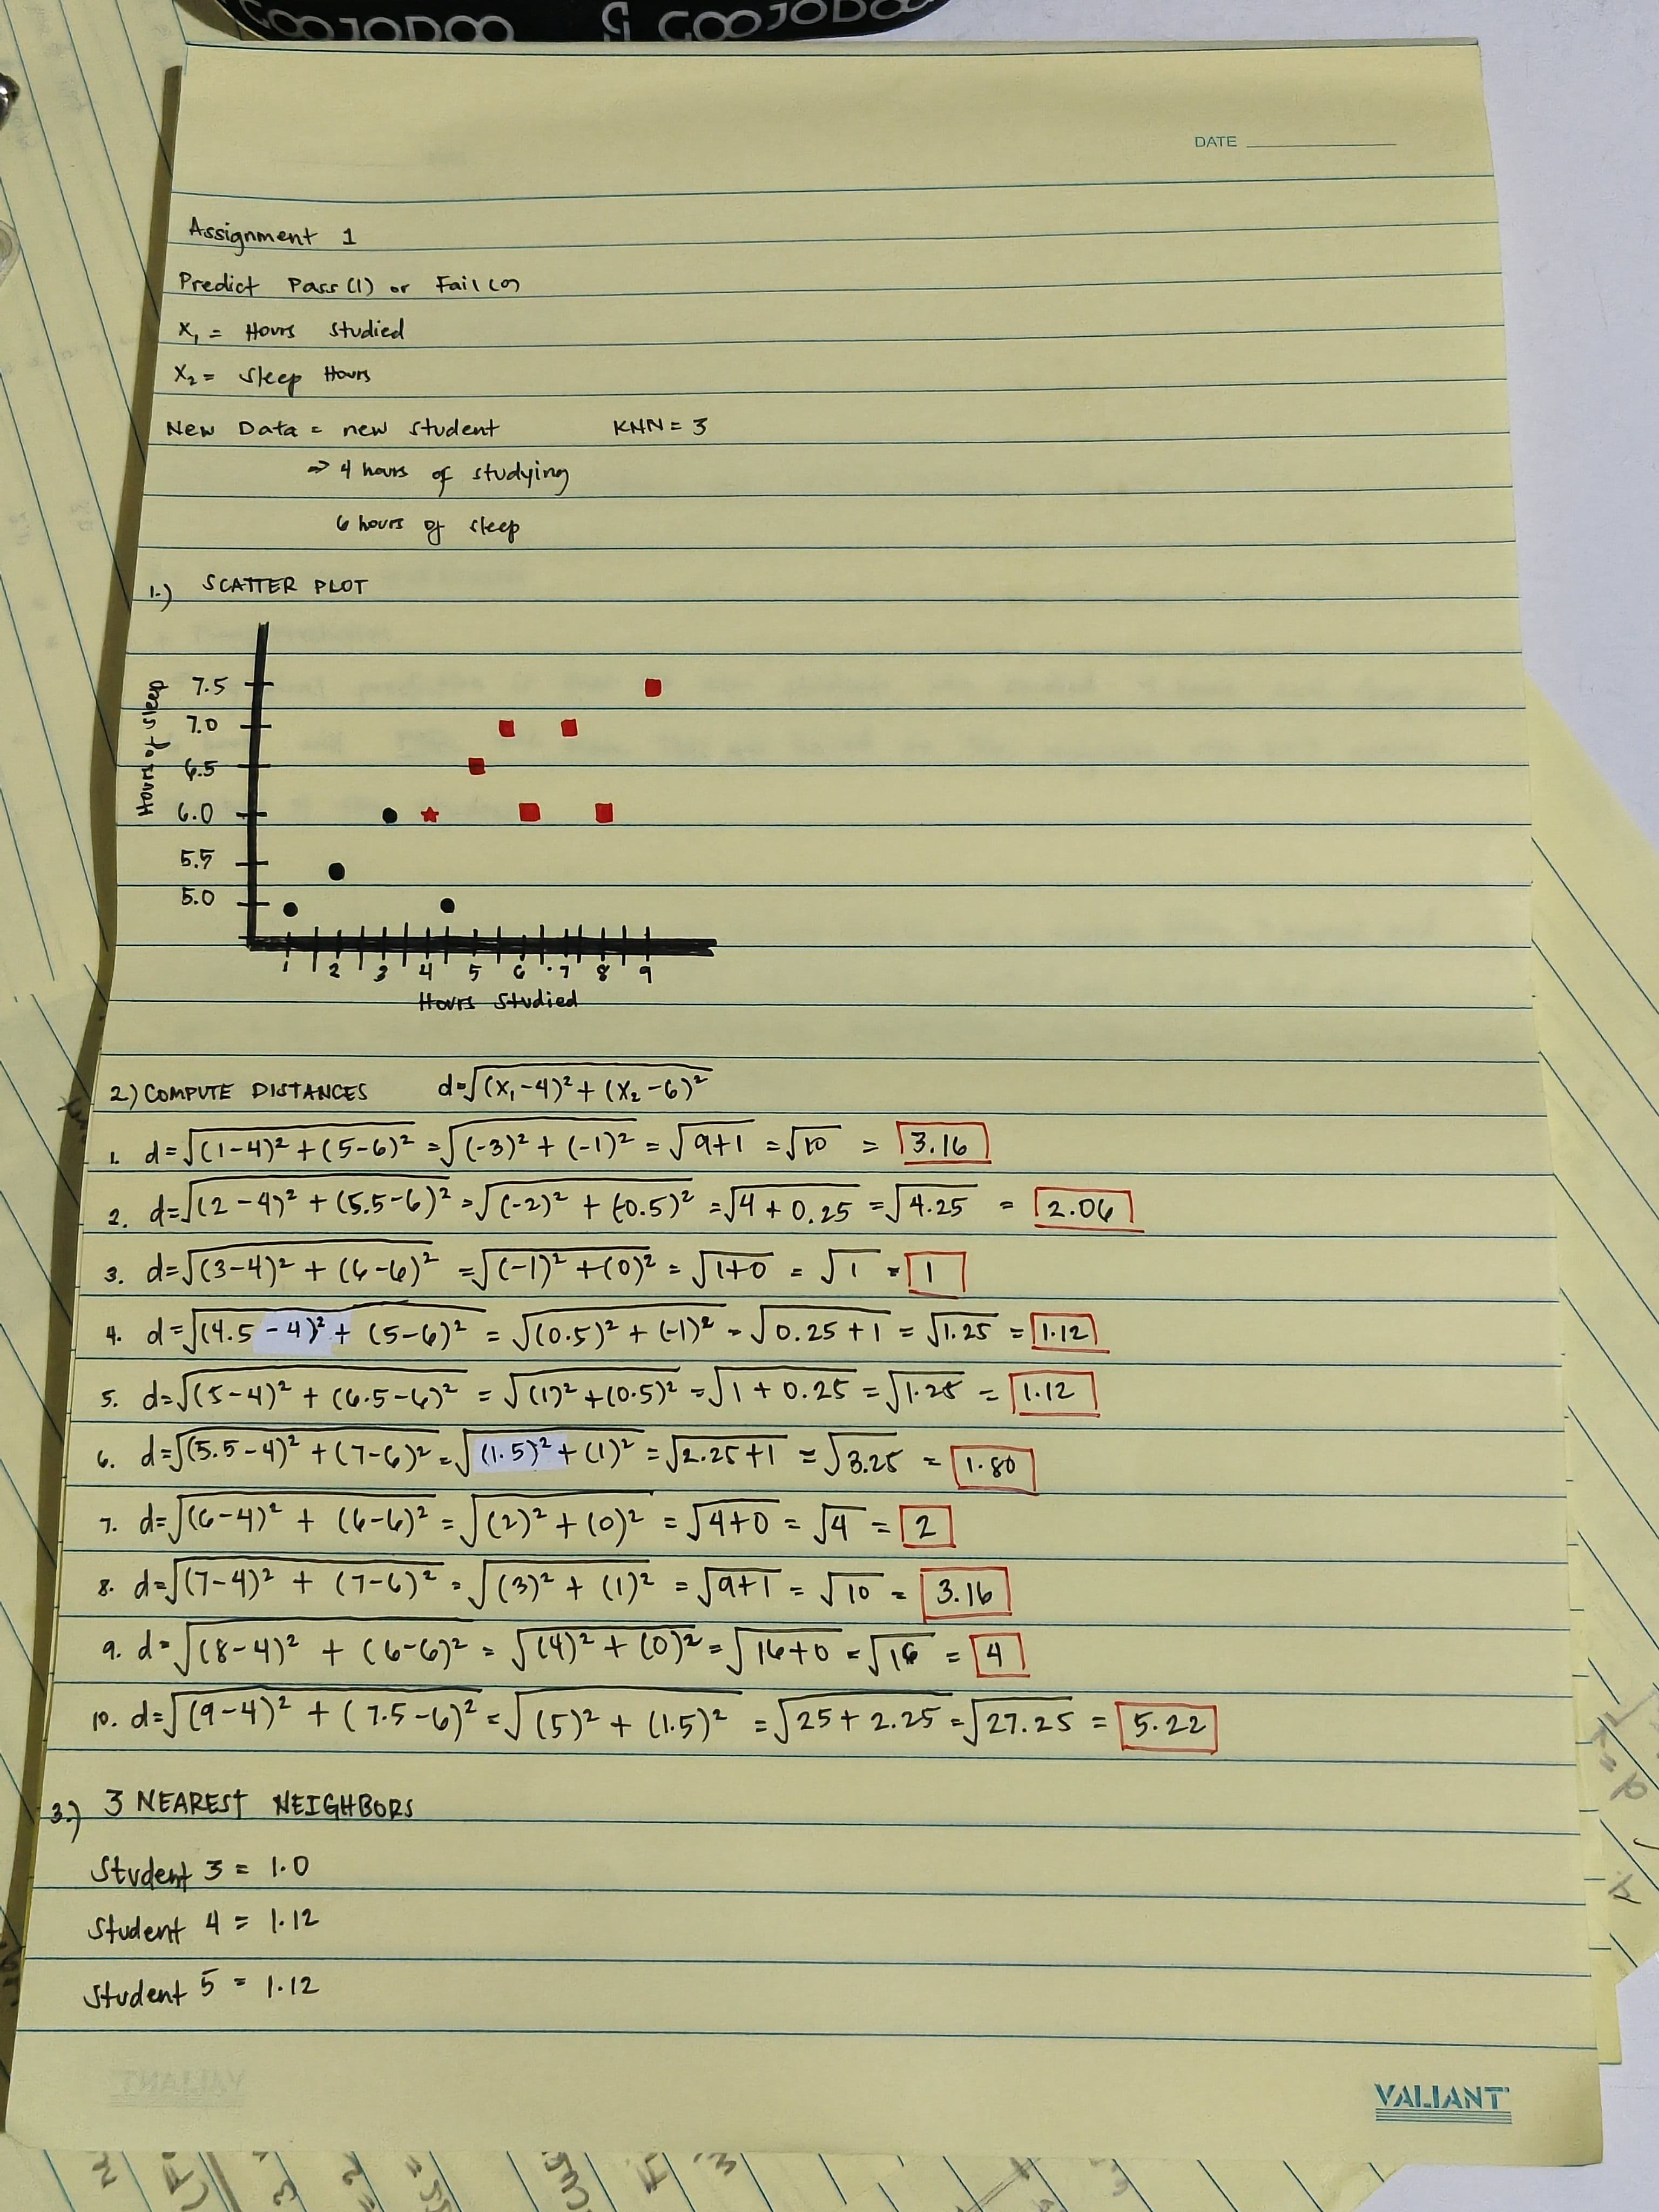 GOOJODOO GOOJODOO
DATE
Assignment 1
Predict Pass (1) or Fail (0)
X₁ = Hours Studied
X₂ = Sleep Hours
New Data = new student KNN = 3
⇒ 4 hours of studying
6 hours of sleep
1.) SCATTER PLOT
Hours of sleep
7.5
7.0
6.5
6.0
5.5
5.0
1 2 3 4 5 6 7 8 9
Hours Studied
2) COMPUTE DISTANCES d=√(X₁-4)²+(X₂-6)²
1. d=√(1-4)²+(5-6)² = √(-3)²+(-1)² = √9+1 = √10 = 3.16
2. d=√(2-4)²+(5.5-6)² = √(-2)²+(-0.5)² = √4+0.25 = √4.25 = 2.06
3. d=√(3-4)²+(6-6)² = √(-1)²+(0)² = √1+0 = √1 = 1
4. d=√(4.5-4)²+(5-6)² = √(0.5)²+(-1)² = √0.25+1 = √1.25 = 1.12
5. d=√(5-4)²+(6.5-6)² = √(1)²+(0.5)² = √1+0.25 = √1.25 = 1.12
6. d=√(5.5-4)²+(7-6)² = √(1.5)²+(1)² = √2.25+1 = √3.25 = 1.80
7. d=√(6-4)²+(6-6)² = √(2)²+(0)² = √4+0 = √4 = 2
8. d=√(7-4)²+(7-6)² = √(3)²+(1)² = √9+1 = √10 = 3.16
9. d=√(8-4)²+(6-6)² = √(4)²+(0)² = √16+0 = √16 = 4
10. d=√(9-4)²+(7.5-6)² = √(5)²+(1.5)² = √25+2.25 = √27.25 = 5.22
3.) 3 NEAREST NEIGHBORS
Student 3 = 1.0
Student 4 = 1.12
Student 5 = 1.12
VALIANT